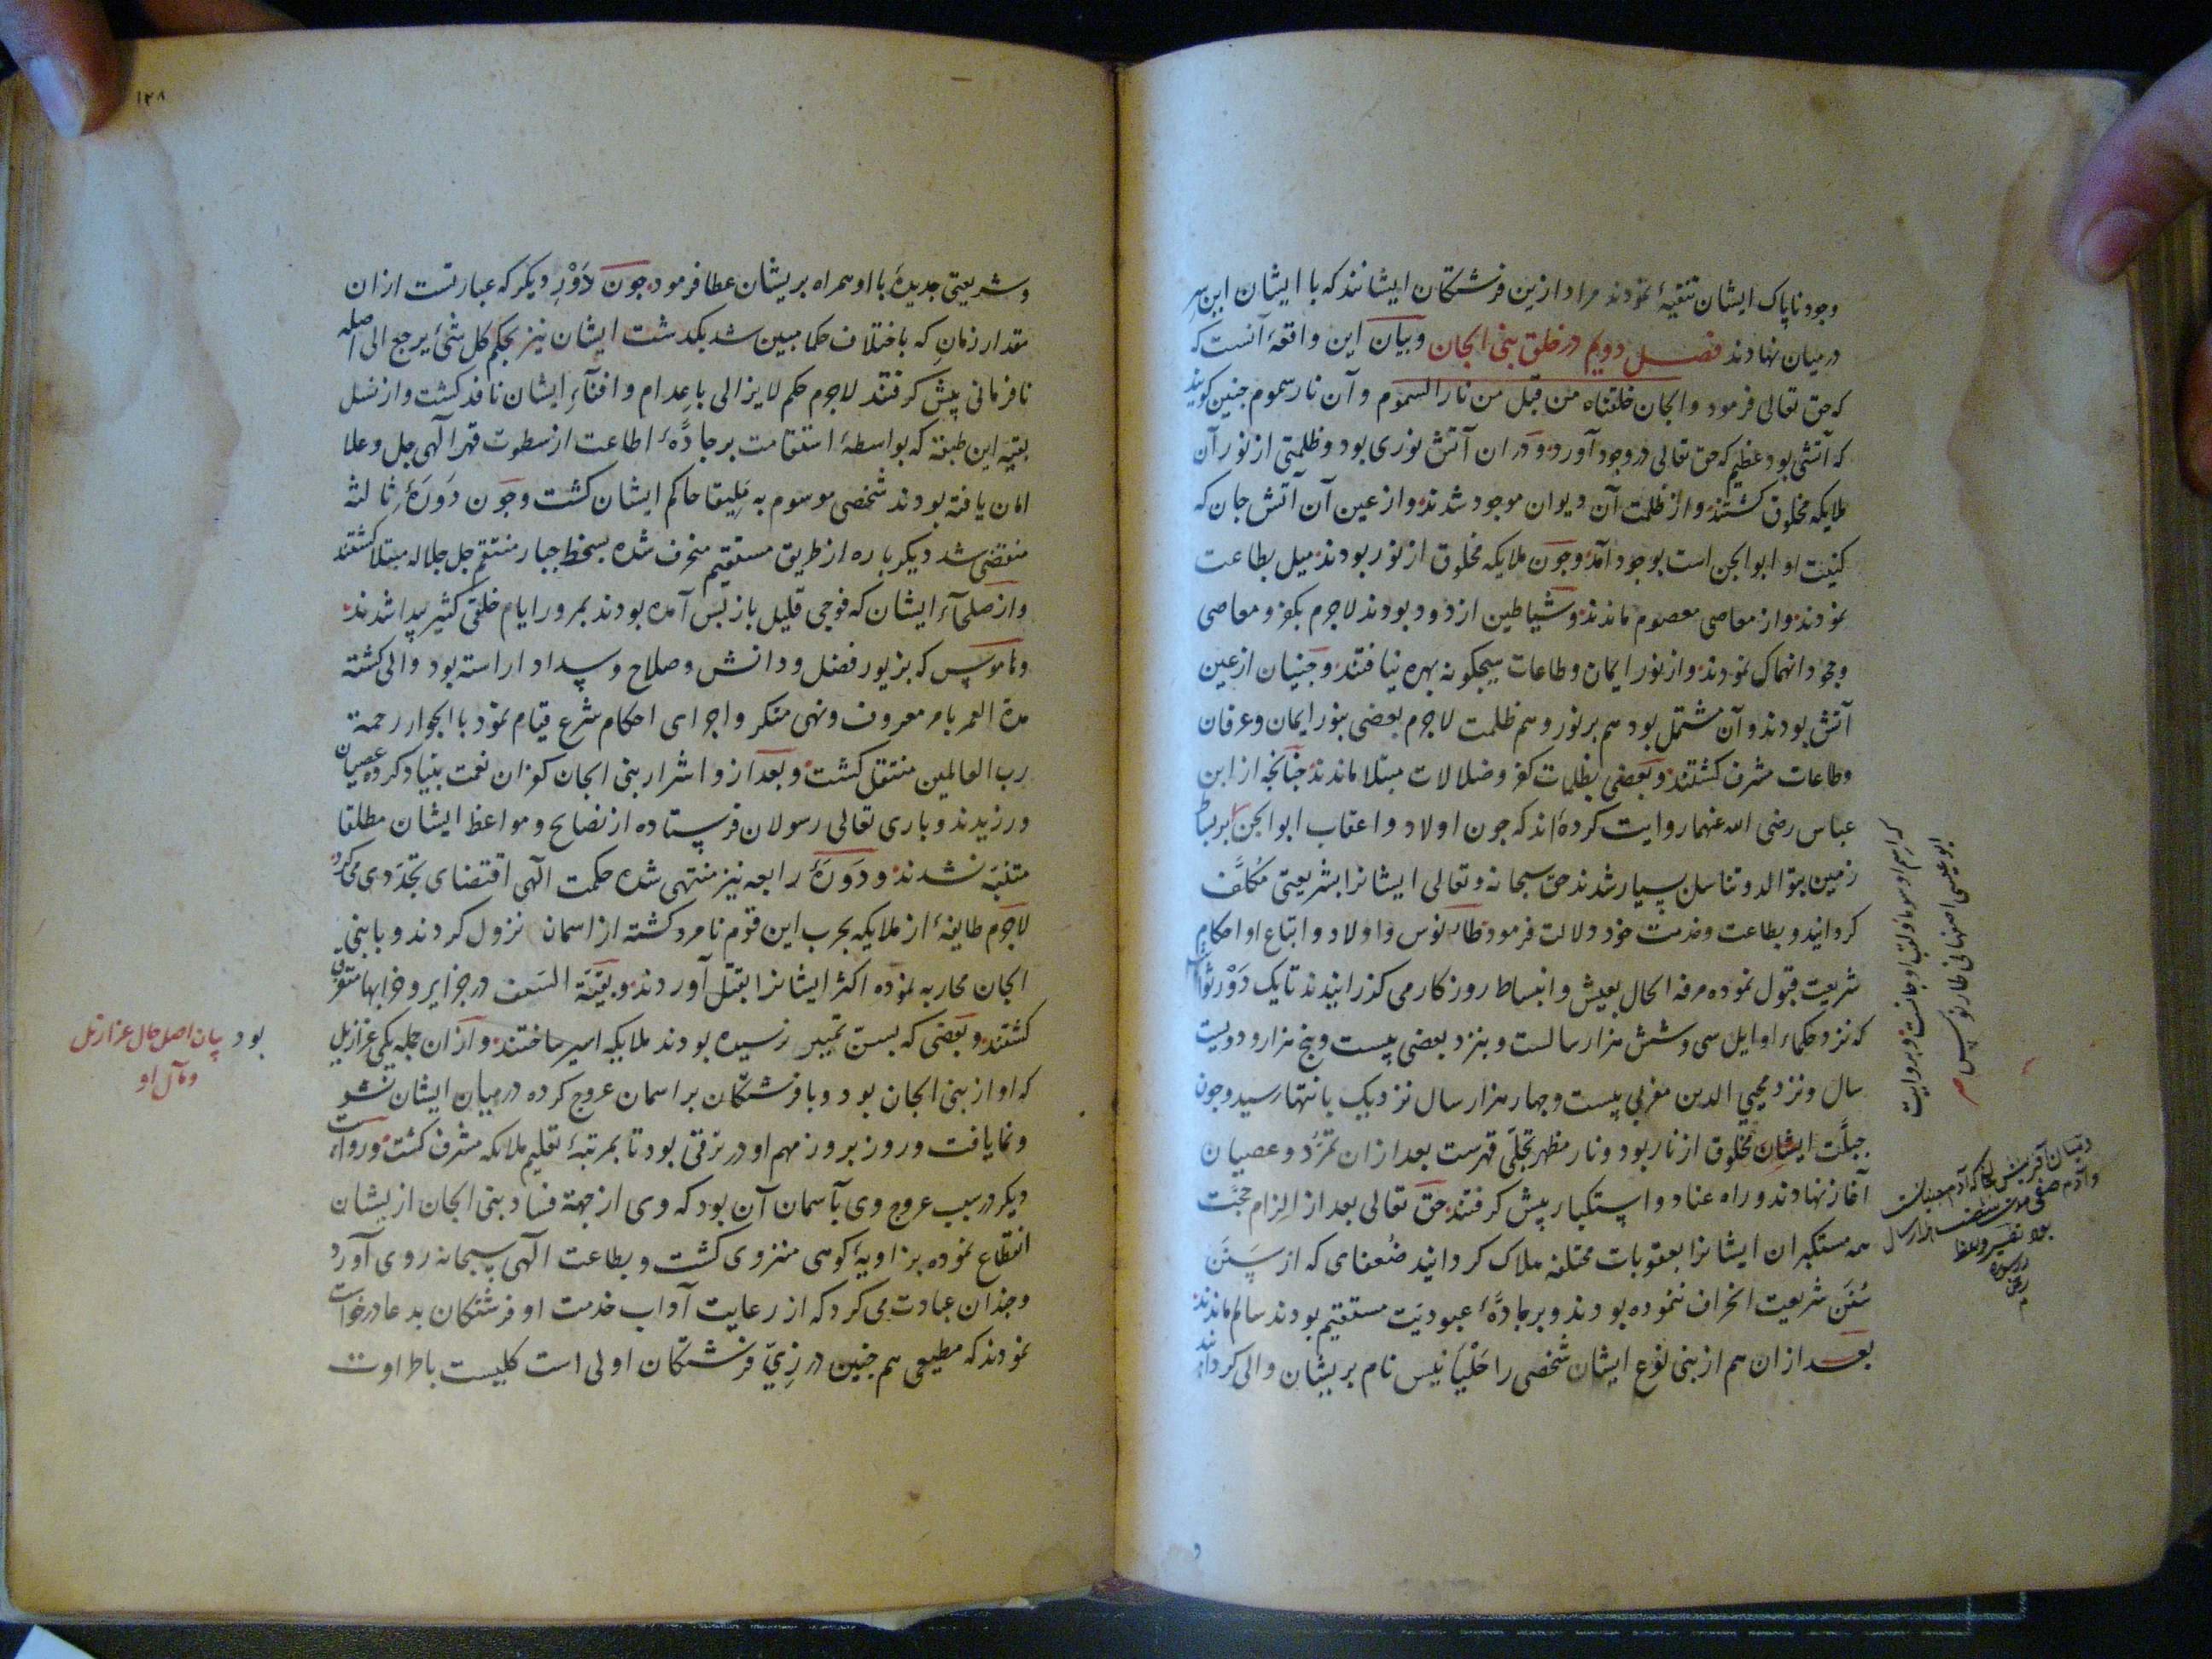 وجود ناپاک ایشان تنقیهٔ نمودند مراد ازین فرشتکان ایشانند که با ایشان این سرِ
در میان نهادند فصل دویم در خلق بنی الجان وبیان این واقعهٔ آنست که
که حق تعالی فرمود والجان خلقناه من قبل من نار السموم وآن نار سموم جنین کویند
که آتشی بود عظیم که حق تعالی در وجود آورد ودر ان آتش نوری بود وظلمتی از نور آن
ملایکه مخلوق کشتند واز ظلمت آن دیوان موجود شدند واز عین آن آتش جان که
کنیت او ابو الجن است بوجود آمد وجون ملایکه مخلوق از نور بودند میل بطاعت
نمودند واز معاصی معصوم ماندند وشیاطین از دود بودند لاجرم بکفر ومعاصی
وجحود انهماک نمودند واز نور ایمان وطاعات هیجکونه بهره نیافتند وجنیان از عین
آتش بودند وآن مشتمل بود هم بر نور وهم ظلمت لاجرم بعضی بنور ایمان وعرفان
وطاعات مشرف کشتند وبعضی بظلمات کفر وضلالات مبتلا ماندند جنانجه از ابن
عباس رضی الله عنهما روایت کردهٔ اند که جون اولاد واعقاب ابو الجن بر بساط
زمین بتوالد وتناسل بسیار شدند حق سبحانه وتعالی ایشانرا بشریعتی مکلَّف
کردانید وبطاعت وخدمت خود دلالت فرمود طارنوس واولاد واتباع او احکام
شریعت قبول نموده مرفه الحال بعیش وانبساط روزکار می کذرانیدند تا یک دَوْر ثوابت
که نزد حکماء اوایل سی وشش هزار سالست وبنزد بعضی بیست وپنج هزار ودویست
سال ونزد محیی الدین مغربی بیست وجهار هزار سال نزدیک بانتها رسید وجون
جبلَّت ایشان مخلوق از نار بود ونار مظهر تجلّی قهرست بعد از ان تمرّد وعصیان
آغاز نهادند وراه عناد واستکبار پیش کرفتند حق تعالی بعد از الزام حجَّت
همه مستکبران ایشانرا بعقوبات مختلفه هلاک کردانید ضُعفای که از سَنَن
سُنَن شریعت انحراف ننموده بودند وبر جادَّهٔ عبودیّت مستقیم بودند سالم ماندند
بعد از ان هم از بنی نوع ایشان شخصی را حَلْیَانیس نام بریشان والی کردانید
که اسم او سوما ولقب او جانست وبروایت
ابو عیسی اصفهانی طارنوس
و
١٢٨
وشریعتی جدیدهٔ با او همراه بریشان عطا فرمود جون دَوْرِ دیکر که عبارتست از ان
مقدار زمان که باختلاف حکما مبین شد بکدشت ایشان نیز بحکم کل شیٔ یرجع الی اصله
نافرمانی پیش کرفتند لاجرم حکم لایزالی باعدام وافنآء ایشان نافذ کشت واز نسل
بقیه این طبقه که بواسطهٔ استقامت بر جادَّهٔ اطاعت از سطوت قهر الهی جل وعلا
امان یافته بودند شخصی موسوم به مَلِیقا حاکم ایشان کشت وجون دَورَهٔ ثالثه
منقضی شد دیکر باره از طریق مستقیم منحرف شده بسخط جبار منتقم جل جلاله مبتلا کشتند
واز صلحآء ایشان که فوجی قلیل باز پس آمده بودند بمرور ایام خلقی کثیر پیدا شدند
وهاموس که بزیور فضل ودانش وصلاح وسداد اراسته بود والی کشته
مدة العمر بامر معروف ونهی منکر واجرای احکام شرع قیام نمود تا بجوار رحمة
رب العالمین منتقل کشت وبعد از و اشرار بنی الجان کفران نعمت بنیاد کرده عصیان
ورزیدند وباری تعالی رسولان فرستاده از نصایح ومواعظ ایشان مطلقا
متنبّه نشدند ودَورَهٔ رابعه نیز منتهی شده حکمت الهی اقتضای تجدّدی می کرد
لاجرم طایفهٔ از ملایکه بحرب این قوم نامزد کشته از اسمان نزول کردند وبا بنی
الجان محاربه نموده اکثر ایشانرا بقتل آوردند وبقیّة السیف در جزایر وخرابها متفرق
کشتند وبعضی که بسن تمییز نرسیده بودند ملایکه اسیر ساختند واز ان جمله یکی عزازیل
بود بیان اصل حال عزازیل
ومآل او
که او از بنی الجان بود وبا فرشتکان بر اسمان عروج کرده در میان ایشان نشو
ونما یافت وروز بروز مهم او در ترقی بود تا بمرتبهٔ تعلیم ملایکه مشرف کشت وروایت
دیکر در سبب عروج وی بآسمان آن بود که وی از جهة فساد بنی الجان ازیشان
انقطاع نموده بزاویهٔ کوهی منزوی کشت وبطاعت الهی سبحانه روی آورد
وجندان عبادت می کرد که از رعایت آداب خدمت او فرشتکان بدعا درخواست
نمودند که مطیعی هم جنین در زیّ فرشتکان اولی است